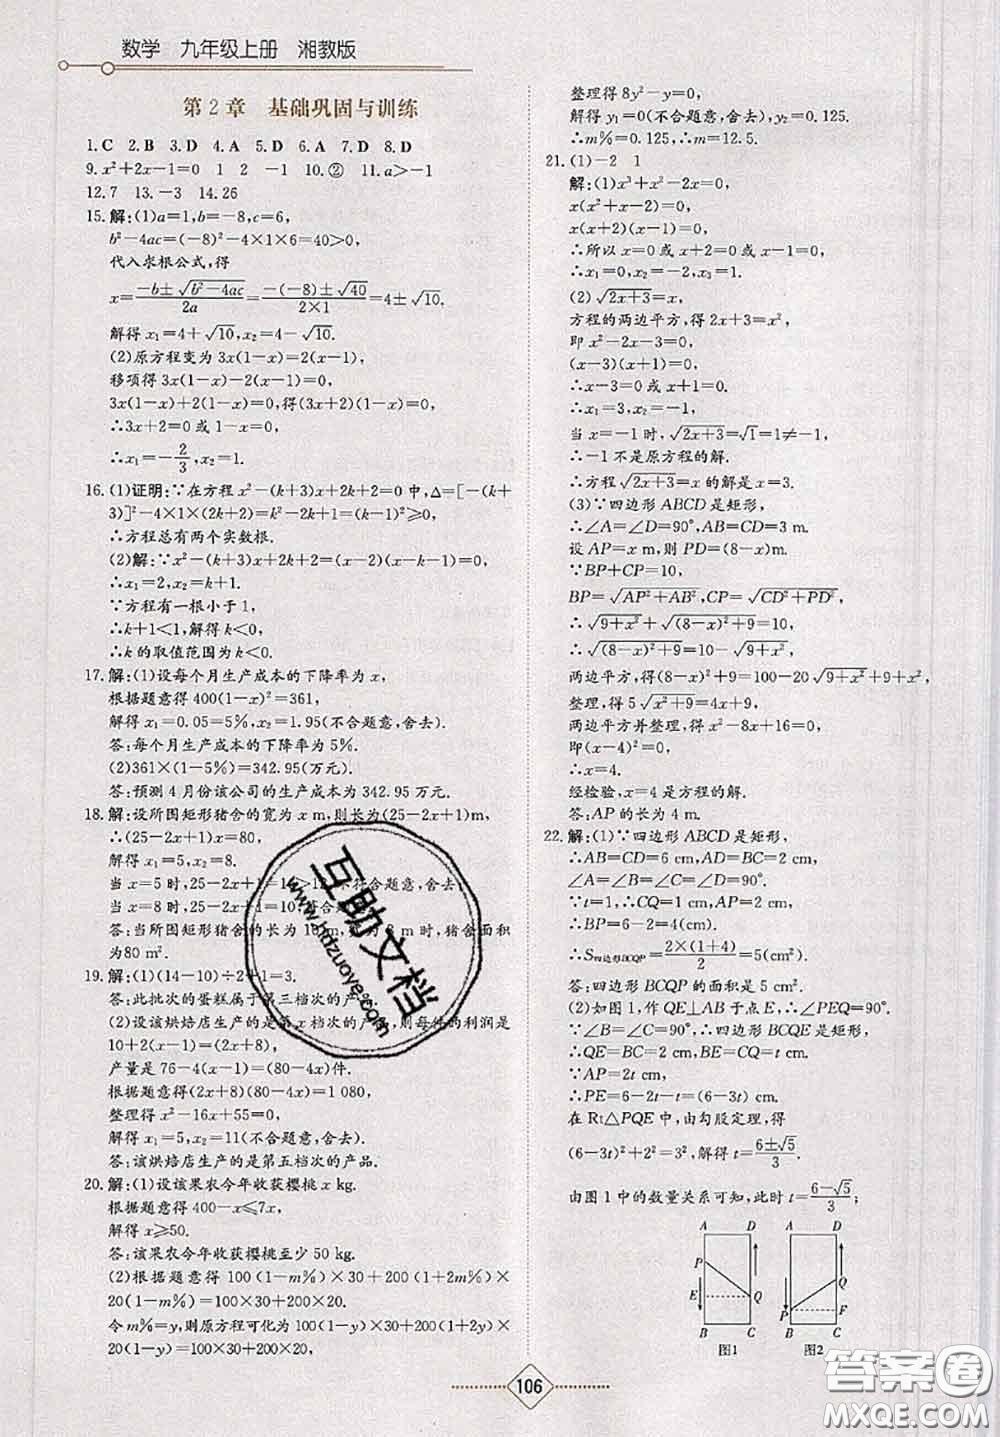 数学 九年级上册 湘教版
第2章 基础巩固与训练
1.C 2.B 3.D 4.A 5.D 6.A 7.D 8.D
9.x²+2x-1=0 1 2 -1 10.② 11.a>-1
12.7 13.-3 14.26
15.解:(1)a=1,b=-8,c=6,
b²-4ac=(-8)²-4×1×6=40>0,
代入求根公式,得
x=(-b±√(b²-4ac))/(2a)=(-(-8)±√40)/(2×1)=4±√10.
解得x₁=4+√10,x₂=4-√10.
(2)原方程变为3x(1-x)=2(1-x),
移项得3x(1-x)-2(1-x)=0,
3x(1-x)+2(1-x)=0,得(3x+2)(1-x)=0,
∴3x+2=0或1-x=0,
∴x₁=-2/3,x₂=1.
16.(1)证明:∵在方程x²-(k+3)x+2k+2=0中,Δ=[-(k+
3)]²-4×1×(2k+2)=k²-2k+1=(k-1)²≥0,
∴方程总有两个实数根.
(2)解:∵x²-(k+3)x+2k+2=(x-2)(x-k-1)=0,
∴x₁=2,x₂=k+1.
∵方程有一根小于1,
∴k+1<1,解得k<0,
∴k的取值范围为k<0.
17.解:(1)设每个月生产成本的下降率为x,
根据题意得400(1-x)²=361,
解得x₁=0.05=5%,x₂=1.95(不合题意,舍去).
答:每个月生产成本的下降率为5%.
(2)361×(1-5%)=342.95(万元).
答:预测4月份该公司的生产成本为342.95万元.
18.解:设所围矩形猪舍的宽为x m,则长为(25-2x+1)m,
∴(25-2x+1)x=80,
解得x₁=5,x₂=8.
当x=5时,25-2x+1=1 >12,不符合题意,舍去;
当x=8时,25-2x+1=10,符合
答:当所围矩形猪舍的长为10 m, 8 m时,猪舍面积
为80 m².
19.解:(1)(14-10)÷2+1=3.
答:此批次的蛋糕属于第三档次的产
(2)设该烘焙店生产的是第x档次的产 ,则每件的利润是
10+2(x-1)=(2x+8)元,
产量是76-4(x-1)=(80-4x)件.
根据题意得(2x+8)(80-4x)=1 080,
整理得x²-16x+55=0,
解得x₁=5,x₂=11(不合题意,舍去).
答:该烘焙店生产的是第五档次的产品.
20.解:(1)设该果农今年收获樱桃x kg.
根据题意得400-x≤7x,
解得x≥50.
答:该果农今年收获樱桃至少50 kg.
(2)根据题意得100(1-m%)×30+200(1+2m%)×
20(1-m%)=100×30+200×20.
令m%=y,则原方程可化为100(1-y)×30+200(1+2y)×
20(1-y)=100×30+200×20,
整理得8y²-y=0,
解得y₁=0(不合题意,舍去),y₂=0.125.
∴m%=0.125,∴m=12.5.
21.(1)-2 1
解:(1)x³+x²-2x=0,
x(x²+x-2)=0,
x(x+2)(x-1)=0,
∴所以x=0或x+2=0或x-1=0,
∴x₁=0,x₂=-2,x₃=1.
(2)√(2x+3)=x,
方程的两边平方,得2x+3=x²,
即x²-2x-3=0,
(x-3)(x+1)=0,
∴x-3=0或x+1=0.
∴x₁=3,x₂=-1,
当x=-1时,√(2x+3)=√1=1≠-1,
∴-1不是原方程的解.
∴方程√(2x+3)=x的解是x=3.
(3)∵四边形ABCD是矩形,
∴∠A=∠D=90°,AB=CD=3 m.
设AP=x m,则PD=(8-x)m.
∵BP+CP=10,
BP=√(AP²+AB²),CP=√(CD²+PD²),
∴√(9+x²)+√((8-x)²+9)=10,
∴√((8-x)²+9)=10-√(9+x²),
两边平方,得(8-x)²+9=100-20√(9+x²)+9+x²,
整理,得5√(x²+9)=4x+9,
两边平方并整理,得x²-8x+16=0,
即(x-4)²=0,
∴x=4.
经检验,x=4是方程的解.
答:AP的长为4 m.
22.解:(1)∵四边形ABCD是矩形,
∴AB=CD=6 cm,AD=BC=2 cm,
∠A=∠B=∠C=∠D=90°.
∵t=1,∴CQ=1 cm,AP=2 cm,
∴BP=6-2=4(cm).
∴S四边形BCQP=(2×(1+4))/2=5(cm²).
答:四边形BCQP的面积是5 cm².
(2)如图1,作QE⊥AB于点E,∴∠PEQ=90°.
∵∠B=∠C=90°,∴四边形BCQE是矩形,
∴QE=BC=2 cm,BE=CQ=t cm.
∵AP=2t cm,
∴PE=6-2t-t=(6-3t) cm.
在Rt△PQE中,由勾股定理,得
(6-3t)²+2²=3²,解得t=(6±√5)/3.
由图1中的数量关系可知,此时t=(6-√5)/3;
A D A D
P Q
E Q P F
B C B C
图1 图2
106
互助文档
www.hdzuoye.com
答案圈
MXQE.COM